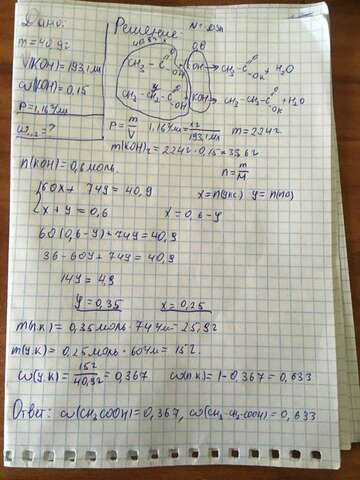 Дано:
m = 40,9г
V(KOH) = 193,1 мл
ω(KOH) = 0,15
ρ = 1,16 г/мл
= ?
Решение
0,6
CH₃ – C OH + KOH → CH₃ – C OK + H₂O
CH₃ – CH₂ – C OH + KOH → CH₃ – CH₂ – C OK + H₂O
ρ = m/V 1,16 г/мл = xг/193,1мл m = 224г
m(KOH) = 224г · 0,15 = 33,6г
n = m/M
n(KOH) = 0,6 моль
60x + 74y = 40,9 x = n(укс) y = n(пр)
x + y = 0,6 x = 0,6 – y
60(0,6 – y) + 74y = 40,9
36 – 60y + 74y = 40,9
14y = 4,9
y = 0,35 x = 0,25
m(п.к) = 0,35 моль · 74 г/м = 25,9г
m(у.к) = 0,25 моль · 60 г/м = 15г
ω(у.к) = 15г/40,9г = 0,367 ω(п.к) = 1 – 0,367 = 0,633
Ответ: ω(CH₃COOH) = 0,367, ω(CH₃-CH₂-COOH) = 0,633